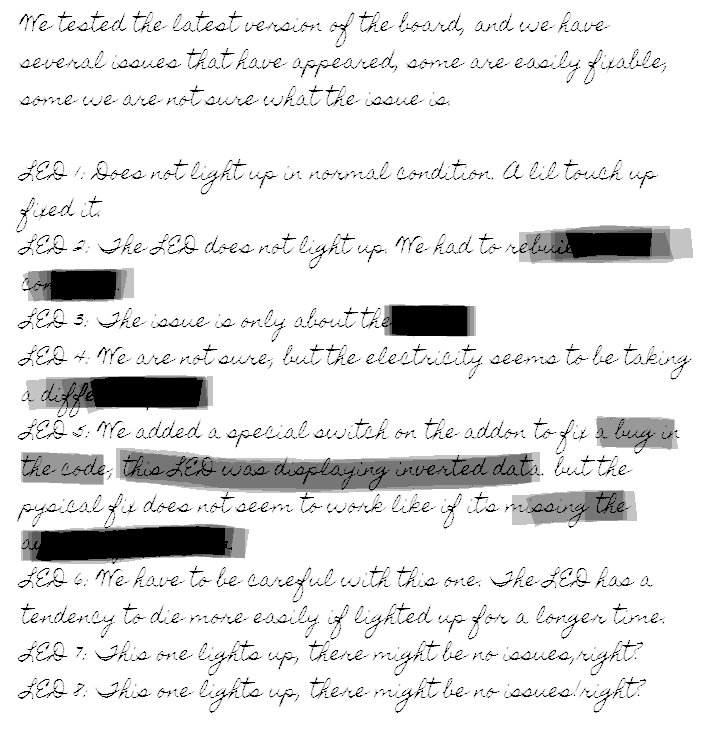 We tested the latest version of the board, and we have
several issues that have appeared, some are easily fixable,
some we are not sure what the issue is.
LED 1: Does not light up in normal condition. A lil touch up
fixed it.
LED 2: The LED does not light up. We had to
LED 3: The issue is only about the
LED 4: We are not sure, but the electricity seems to be taking
a
LED 5: We added a special switch on the addon to fix a bug in
the code, this LED was displaying inverted data. but the
pysical fix does not seem to work like if its missing the
LED 6: We have to be careful with this one. The LED has a
tendency to die more easily if lighted up for a longer time.
LED 7: This one lights up, there might be no issues,right?
LED 8: This one lights up, there might be no issues!right?